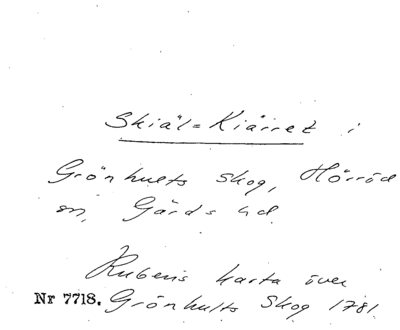 Skiäl=Kiärret i
Grönhults Skog, Hörröd
sn, Gärds hd.
Rubens karta över
Nr 7718. Grönhults Skog 1781.